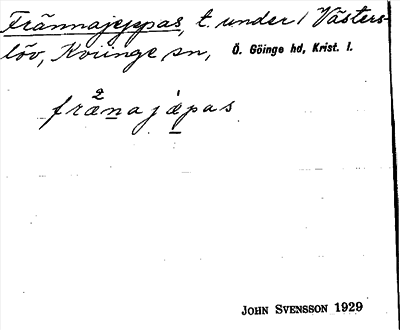 Frännajeppas, t. under 1 Västers-
löv, Kviinge sn, Ö. Göinge hd, Krist. l.
fræ²naja̍pas
JOHN SVENSSON 1929